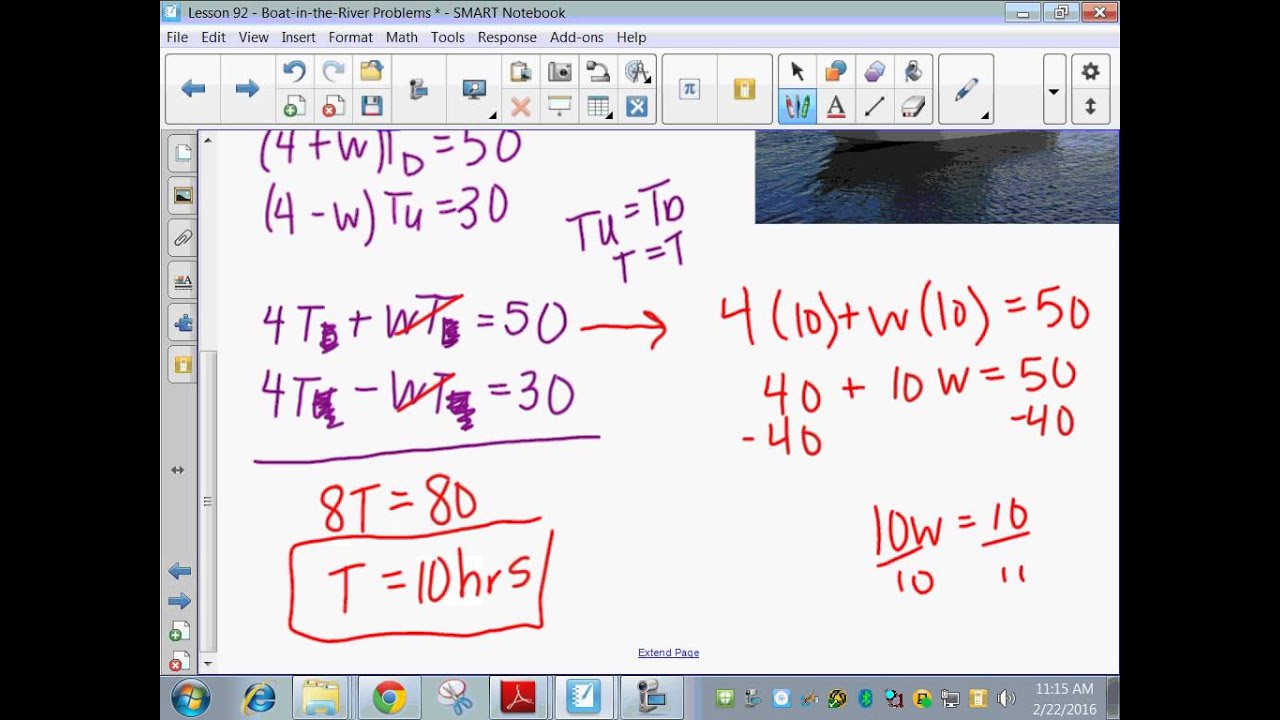 Lesson 92 - Boat-in-the-River Problems * - SMART Notebook
File Edit View Insert Format Math Tools Response Add-ons Help
π
A
(4+W)T_D=50
(4-W)Tu=30
Tu=T_D
T=T
4T + WT =50
4T - WT =30
8T=80
T=10hrs
4(10)+W(10)=50
40 + 10W=50
-40 -40
10W=10
10 11
Extend Page
11:15 AM
2/22/2016